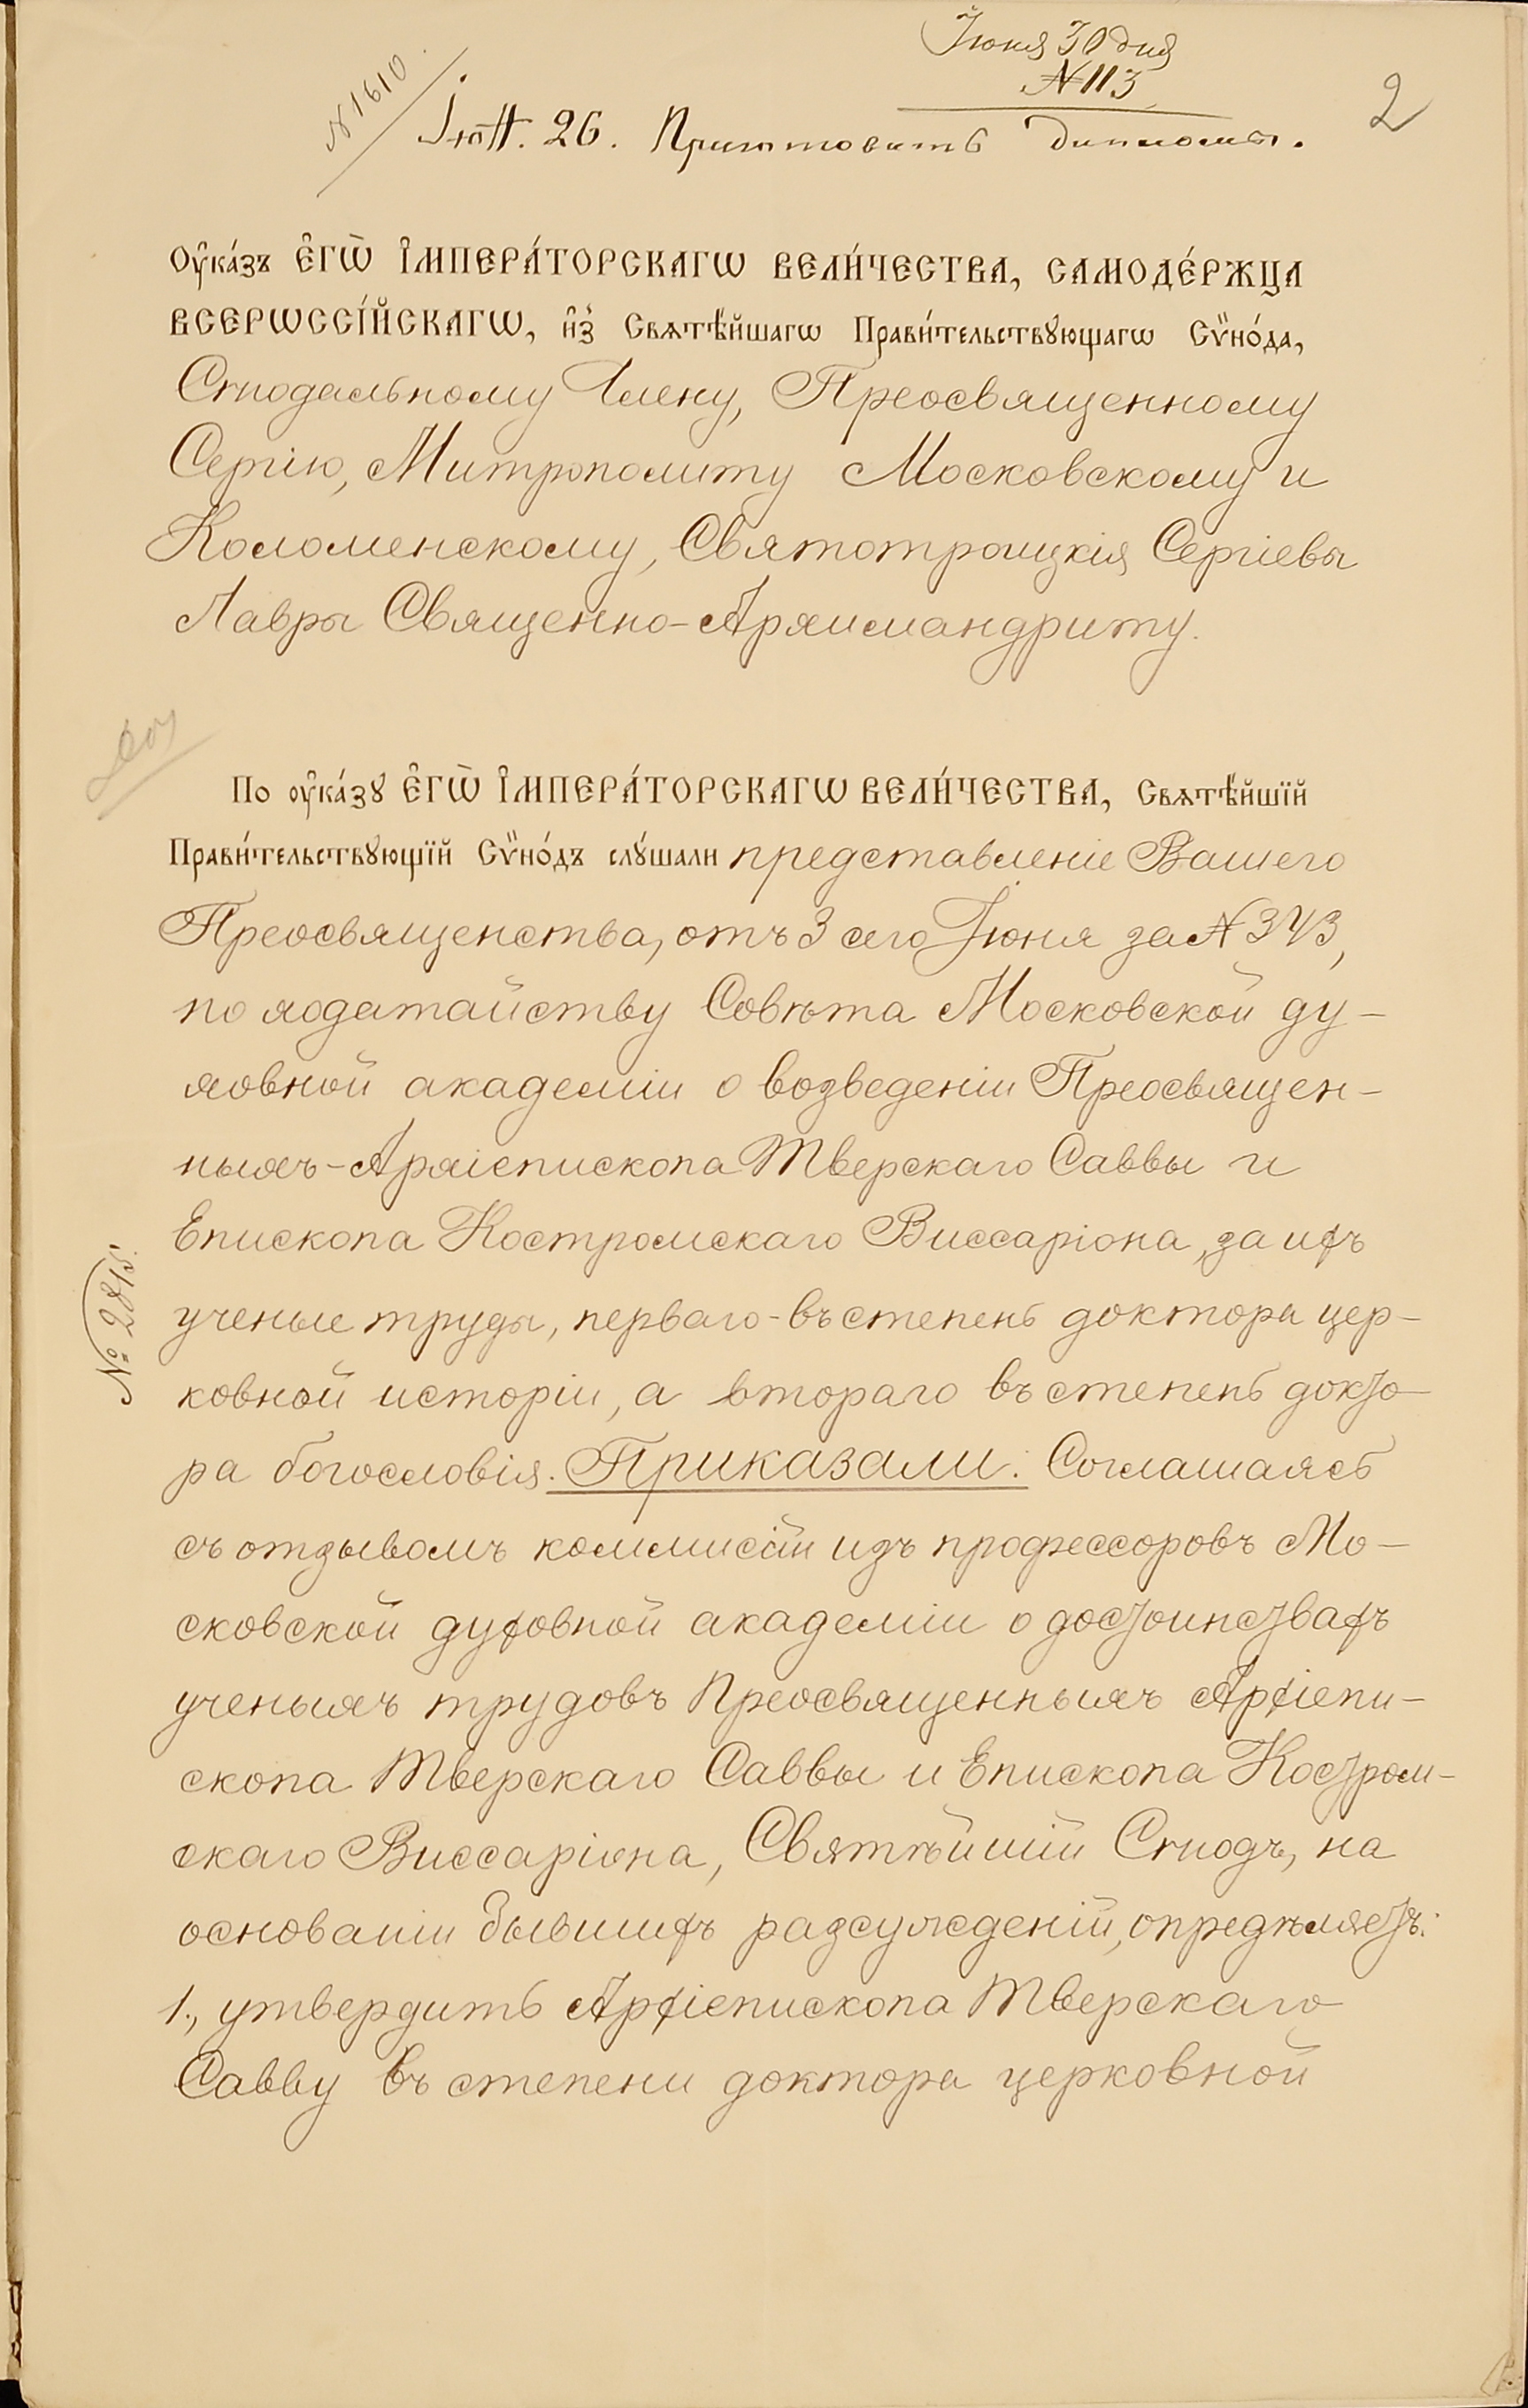 Іюня 30 дня
№ 113
2
№ 1610
Іюн. 26. Приготовить дипломы.
Оу҆ка́зъ Е҆ГѠ̀ І҆МПЕРА́ТОРСКАГѠ ВЕЛИ́ЧЕСТВА, САМОДЕ́РЖЦА
ВСЕРѠССІ́ЙСКАГѠ, и҆з̾ Свѧтѣ́йшагѡ Прави́тельствꙋющагѡ Сѷно́да,
Сѵнодальному Члену, Преосвященному
Сергію, Митрополиту Московскому и
Коломенскому, Святотроицкія Сергіевы
Лавры Священно-Архимандриту.
По оу҆ка́зꙋ Е҆ГѠ̀ І҆МПЕРА́ТОРСКАГѠ ВЕЛИ́ЧЕСТВА, Свѧтѣ́йшїй
Прави́тельствꙋющїй Сѷно́дъ слꙋ́шали представленіе Вашего
Преосвященства, отъ 3 сего Іюня за № 343,
по ходатайству Совѣта Московской ду-
ховной академіи о возведеніи Преосвящен-
ныхъ-Архіепископа Тверскаго Саввы и
Епископа Костромскаго Виссаріона, за ихъ
№ 2815.
ученые труды, перваго-въ степень доктора цер-
ковной исторіи, а втораго въ степень докто-
ра богословія. Приказали: Соглашаясь
съ отзывомъ коммисіи изъ профессоровъ Мо-
сковской духовной академіи о достоинствахъ
ученыхъ трудовъ Преосвященныхъ Архіепи-
скопа Тверскаго Саввы и Епископа Костром-
скаго Виссаріона, Святѣйшій Сѵнодъ, на
основаніи бывшихъ разсужденій, опредѣляетъ:
1., утвердить Архіепископа Тверскаго
Савву въ степени доктора церковной